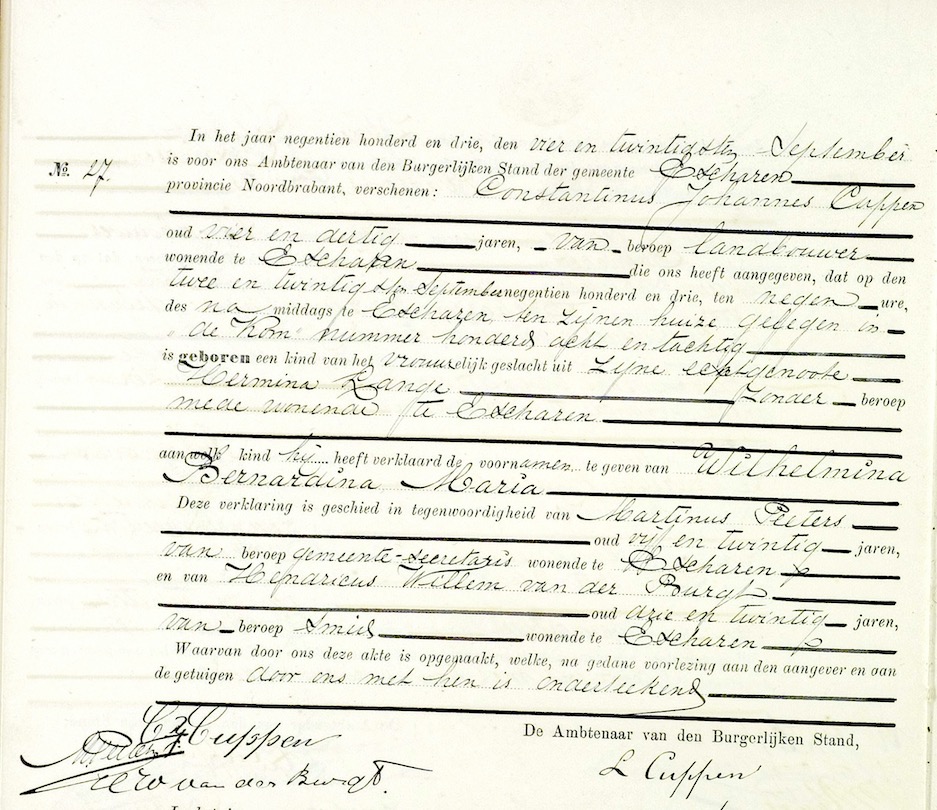 In het jaar negentien honderd en drie, den vier en twintigsten September
No. 27.
is voor ons Ambtenaar van den Burgerlijken Stand der gemeente Escharen
provincie Noordbrabant, verschenen: Constantinus Johannes Cuppen
oud vier en dertig jaren, van beroep landbouwer
wonende te Escharen die ons heeft aangegeven, dat op den
twee en twintigsten September negentien honderd en drie, ten negen ure,
des na middags te Escharen ten zijnen huize gelegen in
"de Kom" nummer honderd acht en tachtig
is geboren een kind van het vrouwelijk geslacht uit zijne echtgenoote
Hermina Lange zonder beroep
mede wonende te Escharen
aan welk kind hij heeft verklaard de voornamen te geven van Wilhelmina
Bernardina Maria
Deze verklaring is geschied in tegenwoordigheid van Martinus Peeters
oud vijf en twintig jaren,
van beroep gemeente-secretaris wonende te Escharen
en van Hendricus Willem van der Burgt
oud drie en twintig jaren,
van beroep smid wonende te Escharen
Waarvan door ons deze akte is opgemaakt, welke, na gedane voorlezing aan den aangever en aan
de getuigen door ons met hen is onderteekend
De Ambtenaar van den Burgerlijken Stand,
C J Cuppen
M Peeters
HW van der Burgt.
L Cuppen